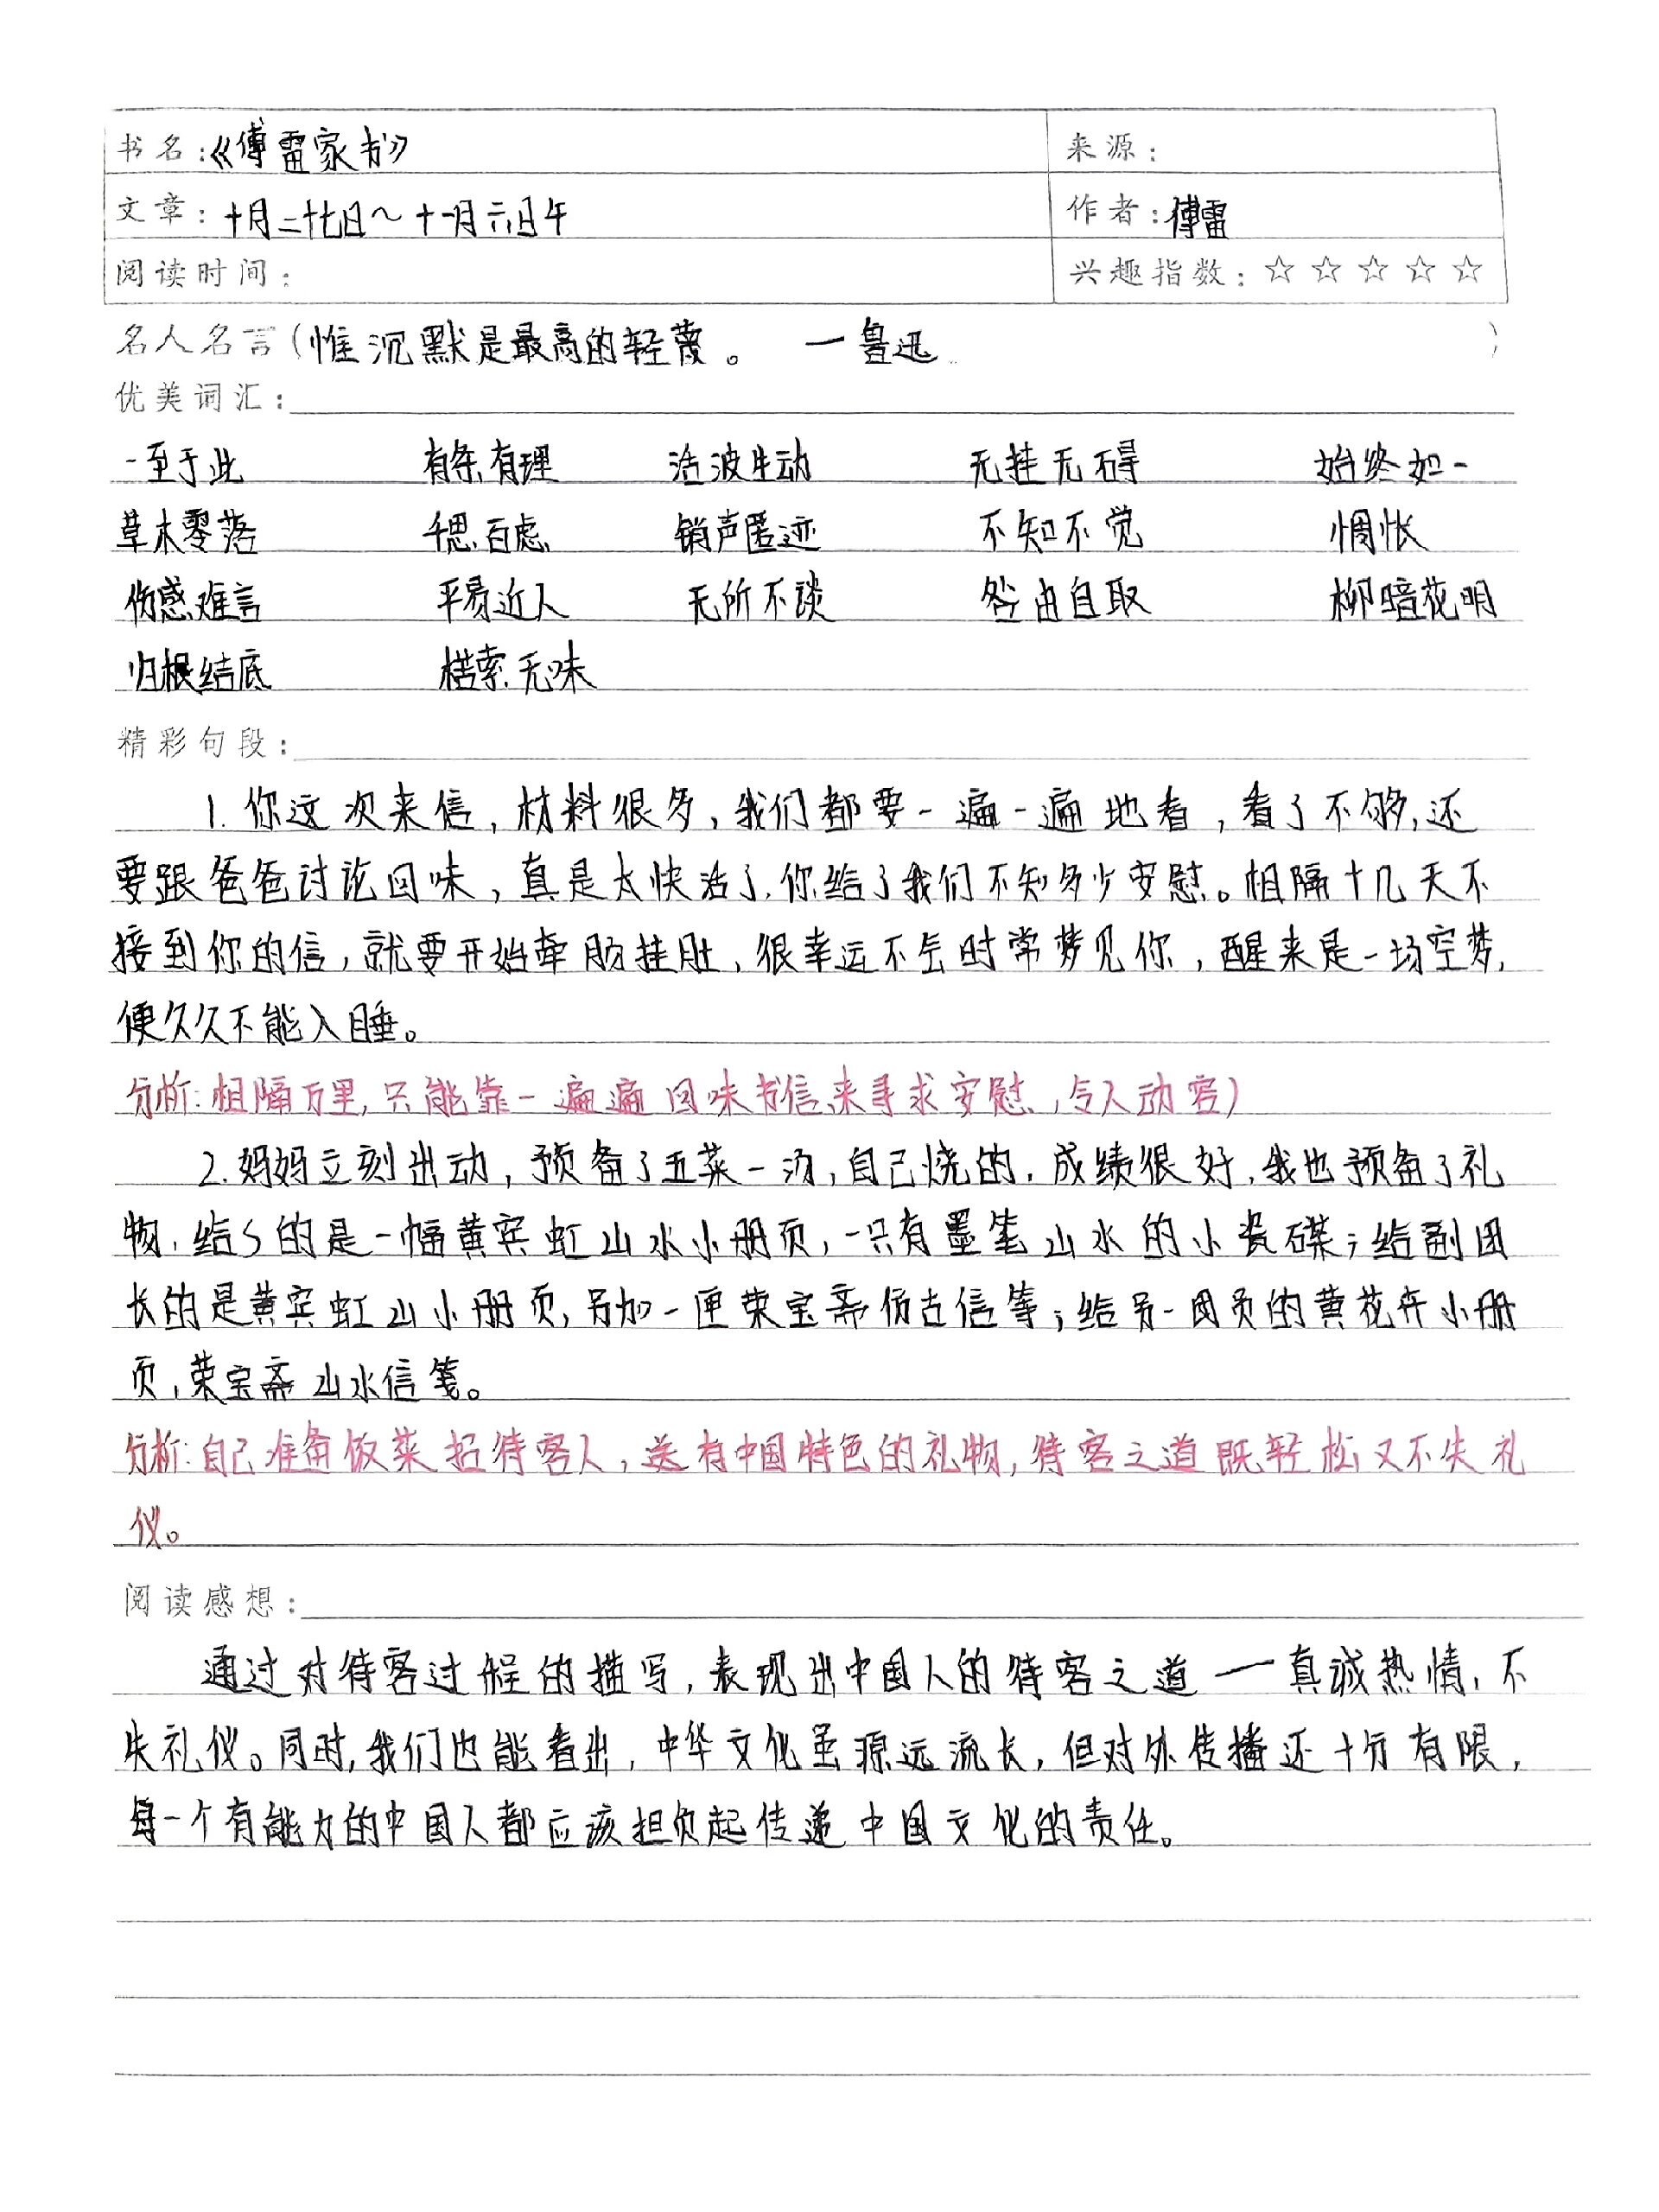 书名：《傅雷家书》 来源：
文章：十月二十七日～十一月六日午 作者：傅雷
阅读时间： 兴趣指数：☆ ☆ ☆ ☆ ☆
名人名言（惟沉默是最高的轻蔑。 —鲁迅 ）
优美词汇：
一至于此 有条有理 活波生动 无挂无碍 始终如一
草木零落 千思百虑 销声匿迹 不知不觉 惆怅
伤感难言 平易近人 无所不谈 咎由自取 柳暗花明
归根结底 枯索无味
精彩句段：
1. 你这次来信，材料很多，我们都要一遍一遍地看，看了不够，还
要跟爸爸讨论回味，真是太快活了，你给了我们不知多少安慰。相隔十几天不
接到你的信，就要开始牵肠挂肚，很幸运不会时常梦见你，醒来是一场空梦，
便久久不能入睡。
分析：相隔万里，只能靠一遍遍回味书信来寻求安慰，令人动容）
2. 妈妈立刻出动，预备了五菜一汤，自己烧的，成绩很好，我也预备了礼
物，给S的是一幅黄宾虹山水小册页，一只有墨笔山水的小瓷碟；给副团
长的是黄宾虹山小册页，另加一匣荣宝斋仿古信笺；给另一团员的黄花卉小册
页，荣宝斋山水信笺。
分析：自己准备饭菜招待客人，送有中国特色的礼物，待客之道既轻松又不失礼
仪。
阅读感想：
通过对待客过程的描写，表现出中国人的待客之道——真诚热情，不
失礼仪。同时，我们也能看出，中华文化虽源远流长，但对外传播还十分有限，
每一个有能力的中国人都应该担负起传递中国文化的责任。